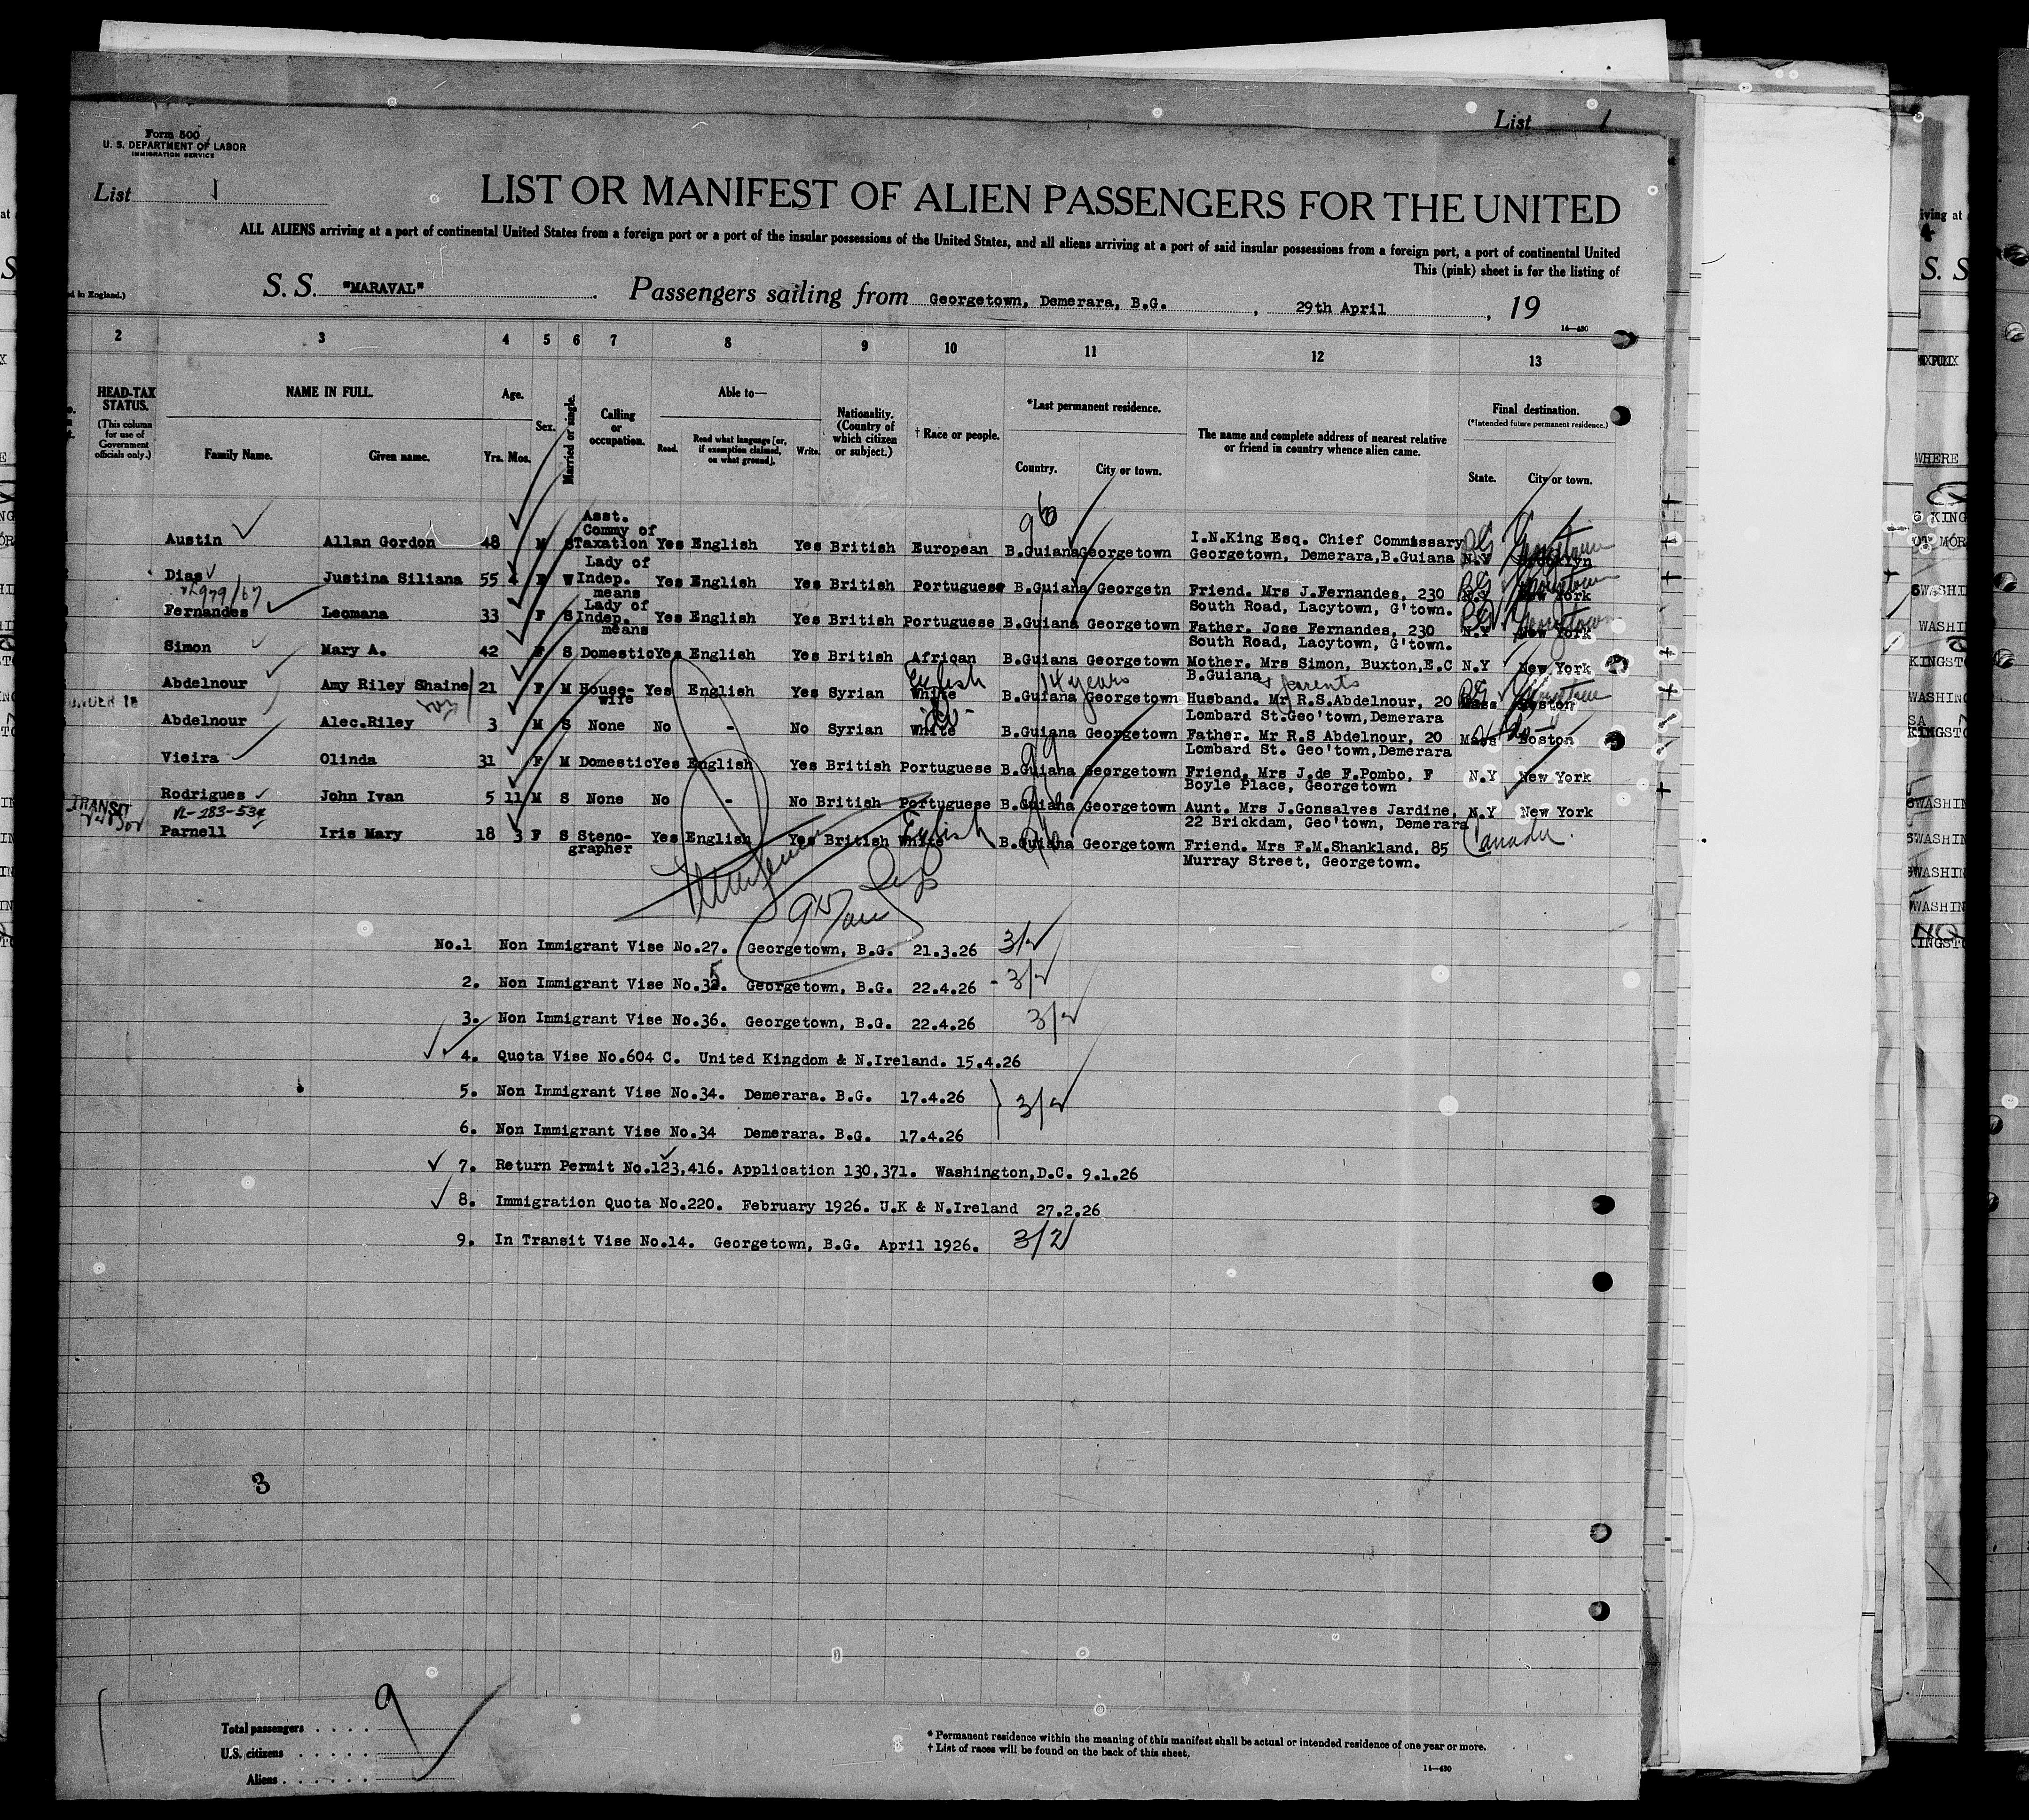 List 1
Form 500
U. S. DEPARTMENT OF LABOR
IMMIGRATION SERVICE
List 1
LIST OR MANIFEST OF ALIEN PASSENGERS FOR THE UNITED
ALL ALIENS arriving at a port of continental United States from a foreign port or a port of the insular possessions of the United States, and all aliens arriving at a port of said insular possessions from a foreign port, a port of continental United
This (pink) sheet is for the listing of
S. S. "MARAVAL" Passengers sailing from Georgetown, Demerara, B.G. , 29th April , 19
14—430
2 3 4 5 6 7 8 9 10 11 12 13
HEAD-TAX STATUS. (This column for use of Government officials only.)
NAME IN FULL.
Family Name. Given name.
Age. Yrs. Mos.
Sex.
Married or single.
Calling or occupation.
Able to—
Read. Read what language [or, if exemption claimed, on what ground]. Write.
Nationality. (Country of which citizen or subject.)
† Race or people.
*Last permanent residence.
Country. City or town.
The name and complete address of nearest relative or friend in country whence alien came.
Final destination.
(*Intended future permanent residence.)
State. City or town.
Austin Allan Gordon 48 M S Asst. Commy of Taxation Yes English Yes British European B.Guiana Georgetown I.N.King Esq. Chief Commissary Georgetown, Demerara, B.Guiana N.Y Brooklyn
Dias Justina Siliana 55 4 F W Lady of Indep. means Yes English Yes British Portuguese B.Guiana Georgetn Friend. Mrs J.Fernandes, 230 South Road, Lacytown, G'town. N.Y New York
Fernandes Leomana 33 F S Lady of Indep. means Yes English Yes British Portuguese B.Guiana Georgetown Father. Jose Fernandes, 230 South Road, Lacytown, G'town. N.Y New York
Simon Mary A. 42 F S Domestic Yes English Yes British African B.Guiana Georgetown Mother. Mrs Simon, Buxton, E.C B.Guiana N.Y New York
Abdelnour Amy Riley Shaine 21 F M House-wife Yes English Yes Syrian White English B.Guiana 14 years Georgetown & parents Husband. Mr R.S.Abdelnour, 20 Lombard St.Geo'town,Demerara Mass Boston
UNDER 16
Abdelnour Alec.Riley 3 M S None No - No Syrian White -do- B.Guiana Georgetown Father. Mr R.S Abdelnour, 20 Lombard St. Geo'town,Demerara Mass Boston
Vieira Olinda 31 F M Domestic Yes English Yes British Portuguese B.Guiana Georgetown Friend. Mrs J.de F.Pombo, F Boyle Place, Georgetown N.Y New York
Rodrigues John Ivan 5 11 M S None No - No British Portuguese B.Guiana Georgetown Aunt. Mrs J.Gonsalves Jardine, 22 Brickdam, Geo'town, Demerara N.Y New York
TRANSIT
Parnell Iris Mary 18 3 F S Steno-grapher Yes English Yes British White English B.Guiana Georgetown Friend. Mrs F.M.Shankland, 85 Murray Street, Georgetown. Canada.
No.1 Non Immigrant Vise No.27. Georgetown, B.G. 21.3.26 3/2
2. Non Immigrant Vise No.35. Georgetown, B.G. 22.4.26 - 3/2
3. Non Immigrant Vise No.36. Georgetown, B.G. 22.4.26 3/2
4. Quota Vise No.604 C. United Kingdom & N.Ireland. 15.4.26
5. Non Immigrant Vise No.34. Demerara. B.G. 17.4.26 3/2
6. Non Immigrant Vise No.34 Demerara. B.G. 17.4.26
7. Return Permit No.123,416. Application 130,371. Washington,D.C. 9.1.26
8. Immigration Quota No.220. February 1926. U.K & N.Ireland 27.2.26
9. In Transit Vise No.14. Georgetown, B.G. April 1926. 3/2
3
Total passengers . . . . 9
U.S. citizens . . . . .
Aliens . . . . . .
* Permanent residence within the meaning of this manifest shall be actual or intended residence of one year or more.
† List of races will be found on the back of this sheet.
14—430